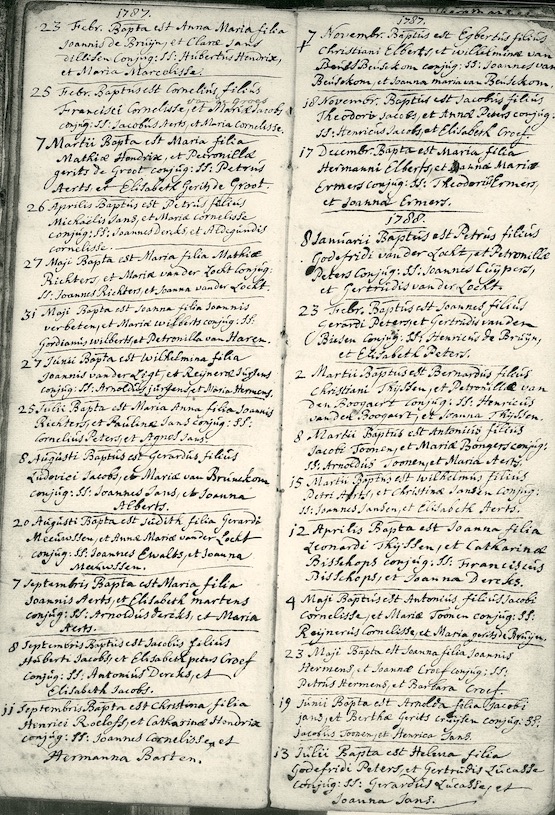 1787.
23 Febr. Bapta est Anna Maria filia
Joannis de Bruijn, et Claræ Jans
conjug: SS: Hubertus Hendrix,
et Maria Marcelisse.
25 Febr. Baptus est Cornelius filius
Francisci Cornelisse, et Mariæ Jacobs
conjug: SS: Jacobus Aerts, et Maria Cornelisse.
7 Martii Bapta est Maria filia
Mathiæ Hendrix, et Petronillæ
gerits de Groot conjug: SS: Petrus
Aerts, et Elisabeth Gerits de Groot.
26 Aprilis Baptus est Petrus filius
Michaëlis Jans, et Mariæ Cornelisse
conjug: SS: Joannes Dercks, et Aldegundis
Cornelisse.
27 Maji Bapta est Maria filia Mathiæ
Richters, et Mariæ van der Lockt conjug:
SS: Joannes Richters, et Joanna van der Lockt.
31 Maji Bapta est Joanna filia Joannis
verbeten, et Mariæ wilberts conjug: SS:
Gordianus wilberts, et Petronilla van Haren.
27 Junii Bapta est wilhelmina filia
Joannis van der Ligt, et Reijneræ Jurjens
conjug: SS: Arnoldus jurjens, et Maria Hermens.
25 Julii Bapta est Maria Anna filia Joannis
Richters, et Paulinæ Jans conjug: SS:
Cornelius Peters, et Agnes Jans.
8 Augusti Baptus est Gerardus filius
Ludovici Jacobs, et Mariæ van Brunekom
conjug: SS: Joannes Jans, et Joanna
Alberts.
20 Augusti Bapta est Judith filia Gerardi
Meeuwssen, et Annæ Mariæ van der Lockt
conjug: SS: Joannes Ewalts, et Joanna
Meeuwssen.
7 Septembris Bapta est Maria filia
Joannis Aerts, et Elisabeth martens
conjug: SS: Arnoldus dercks, et Maria
Aerts.
8 Septembris Baptus est Jacobus filius
Huberti Jacobs, et Elisabeth petrus Croef
conjug: SS: Antonius Dercks, et
Elisabeth Jacobs.
11 Septembris Bapta est Christina filia
Henrici Roelofs, et Catharinæ Hendrix
conjug: SS: Joannes Cornelisse, et
Hermanna Barten.
1787.
7 Novembr. Baptus est Egbertus filius
Christiani Elberts, et willelminæ van
Beusekom conjug: SS: Joannes van
Beusekom, et Joanna maria van Beusekom.
18 Novembr. Baptus est Jacobus filius
Theodori Jacobs, et Annæ Peters conjug:
SS: Henricus Jacobs, et Elisabeth Croef.
17 Decembr. Bapta est Maria filia
Hermanni Elberts, et Annæ Mariæ
Ermers conjug: SS: Theodorus Ermers,
et Joanna Ermers.
1788.
8 Januarii Baptus est Petrus filius
Godefridi van der Lockt, et Petronillæ
Peters conjug: SS: Joannes Cuijpers,
et Gertrudis van der Lockt.
23 Febr. Baptus est Joannes filius
Gerardi Peters, et Gertrudis van den
Biesen conjug: SS: Henricus de Bruijn,
et Elisabeth Peters.
2 Martii Baptus est Bernardus filius
Christiani Thijssen, et Petronillæ van
den Boogaert conjug: SS: Henricus
van den Boogaert, et Joanna Thijssen.
8 Martii Baptus est Antonius filius
Jacobi Toonen, et Mariæ Bongers conjug:
SS: Arnoldus Toonen, et Maria Aerts.
15 Martii Baptus est Wilhelmus filius
Petri Aerts, et Christinæ Jansen conjug:
SS: Joannes Jansen, et Elisabeth Aerts.
12 Aprilis Bapta est Joanna filia
Leonardi Thijssen, et Catharinæ
Bisschops conjug: SS: Franciscus
Bisschops, et Joanna Dercks.
4 Maji Baptus est Antonius filius Jacobi
Cornelisse, et Mariæ Toonen conjug: SS:
Reijnerus Cornelisse, et Maria gerits de Bruijn.
23 Maji Bapta est Joanna filia Joannis
Hermens, et Joannæ Croef conjug: SS:
Petrus Hermens, et Barbara Croef.
19 Junii Bapta est Arnolda filia Jacobi
jans, et Berthæ Gerits Creijssen conjug: SS:
Jacobus Toonen, et Henrica Jans.
13 Julii Bapta est Helena filia
Godefridi Peters, et Gertrudis Lucasse
conjug: SS: Gerardus Lucasse, et
Joanna Jans.